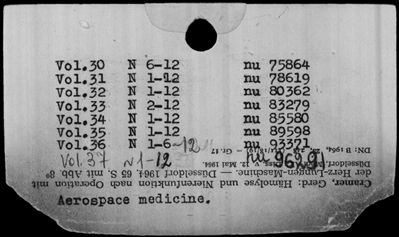 Vol.30 N 6-12 nu 75864
Vol.31 N 1-12 nu 78619
Vol.32 N 1-12 nu 80362
Vol.33 N 2-12 nu 83279
Vol.34 N 1-12 nu 85580
Vol.35 N 1-12 nu 89598
Vol.36 N 1-6-12 nu 93371
Vol.37 N 1-12 nu 96291
Cramer, Gerd: Hämolyse und Nierenfunktion nach Operation mit
der Herz-Lungen-Maschine. — Düsseldorf 1964. 65 S. mit Abb. 8°
Düsseldorf, Med. Diss. v. 12. Mai 1964
DN: B 1964,
Gr. 17
Aerospace medicine.